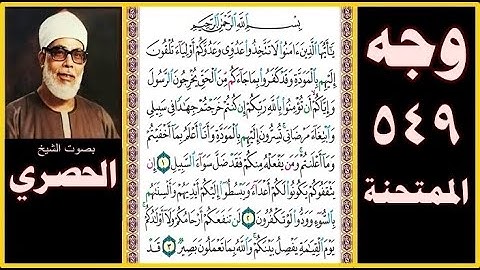 وجه
٥٤٩
الممتحنة
بصوت الشيخ
الحصري
بِسْمِ ٱللَّهِ ٱلرَّحْمَٰنِ ٱلرَّحِيمِ
يَٰٓأَيُّهَا ٱلَّذِينَ ءَامَنُوا۟ لَا تَتَّخِذُوا۟ عَدُوِّى وَعَدُوَّكُمْ أَوْلِيَآءَ تُلْقُونَ
إِلَيْهِم بِٱلْمَوَدَّةِ وَقَدْ كَفَرُوا۟ بِمَا جَآءَكُم مِّنَ ٱلْحَقِّ يُخْرِجُونَ ٱلرَّسُولَ
وَإِيَّاكُمْ أَن تُؤْمِنُوا۟ بِٱللَّهِ رَبِّكُمْ إِن كُنتُمْ خَرَجْتُمْ جِهَٰدًا فِى سَبِيلِى
وَٱبْتِغَآءَ مَرْضَاتِى تُسِرُّونَ إِلَيْهِم بِٱلْمَوَدَّةِ وَأَنَا۠ أَعْلَمُ بِمَآ أَخْفَيْتُمْ
وَمَآ أَعْلَنتُمْ وَمَن يَفْعَلْهُ مِنكُمْ فَقَدْ ضَلَّ سَوَآءَ ٱلسَّبِيلِ ١ إِن
يَثْقَفُوكُمْ يَكُونُوا۟ لَكُمْ أَعْدَآءً وَيَبْسُطُوٓا۟ إِلَيْكُمْ أَيْدِيَهُمْ وَأَلْسِنَتَهُم
بِٱلسُّوٓءِ وَوَدُّوا۟ لَوْ تَكْفُرُونَ ٢ لَن تَنفَعَكُمْ أَرْحَامُكُمْ وَلَآ أَوْلَٰدُكُمْ
يَوْمَ ٱلْقِيَٰمَةِ يَفْصِلُ بَيْنَكُمْ وَٱللَّهُ بِمَا تَعْمَلُونَ بَصِيرٌ ٣ قَدْ